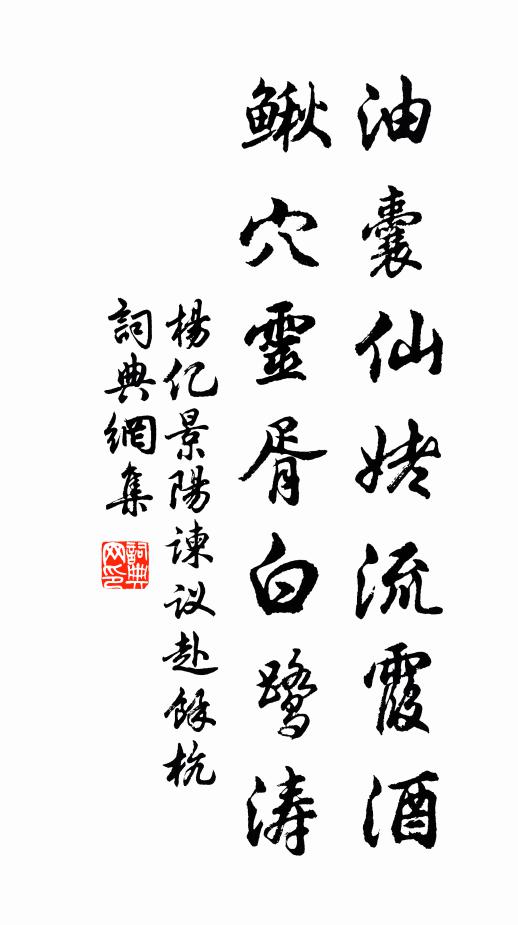 油囊仙姥流霞酒
鳅穴靈胥白鹭涛
楊亿景陽谏议赴餘杭
詞典網集
詞典网印